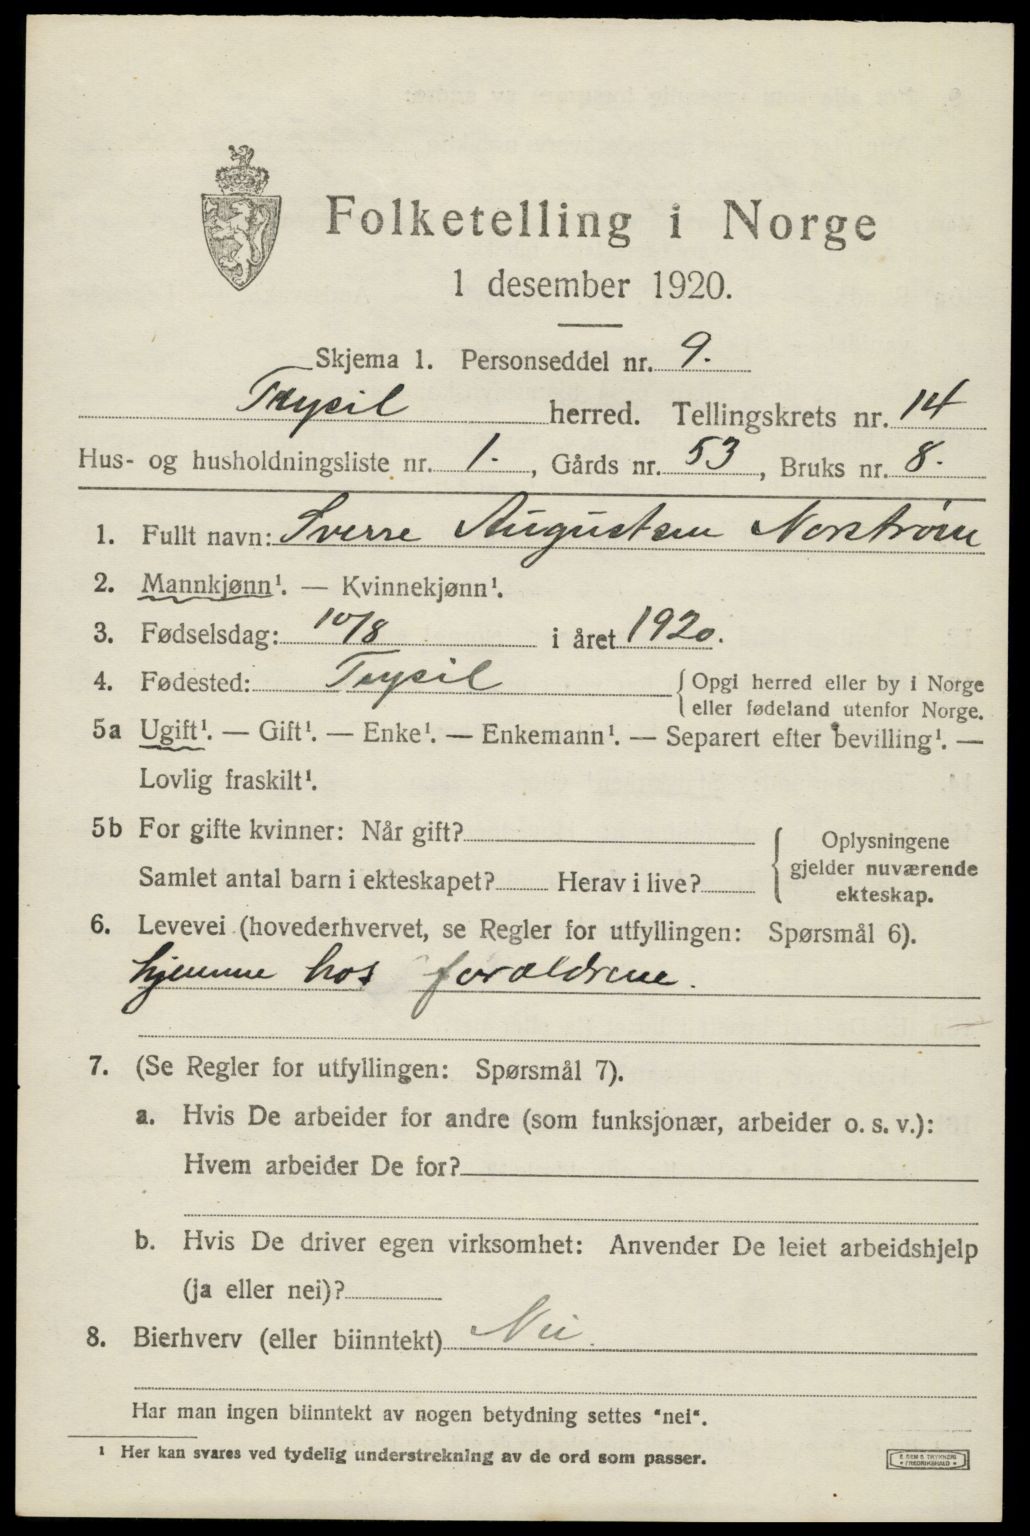 Folketelling i Norge
1 desember 1920.
Skjema 1. Personseddel nr. 9.
Trysil herred. Tellingskrets nr. 14
Hus- og husholdningsliste nr. 1. , Gårds nr. 53 , Bruks nr. 8.
1. Fullt navn: Sverre Augustsen Norstrøm
2. Mannkjønn¹. — Kvinnekjønn¹.
3. Fødselsdag: 10/8 i året 1920.
4. Fødested: Trysil {Opgi herred eller by i Norge
eller fødeland utenfor Norge.
5a Ugift¹. — Gift¹. — Enke¹. — Enkemann¹. — Separert efter bevilling¹. —
Lovlig fraskilt¹.
5b For gifte kvinner: Når gift?
Samlet antal barn i ekteskapet? Herav i live?
{ Oplysningene
gjelder nuværende
ekteskap.
6. Levevei (hovederhvervet, se Regler for utfyllingen: Spørsmål 6).
hjemme hos forældrene.
7. (Se Regler for utfyllingen: Spørsmål 7).
a. Hvis De arbeider for andre (som funksjonær, arbeider o. s. v.):
Hvem arbeider De for?
b. Hvis De driver egen virksomhet: Anvender De leiet arbeidshjelp
(ja eller nei)?
8. Bierhverv (eller biinntekt) Nei.
Har man ingen biinntekt av nogen betydning settes "nei".
¹ Her kan svares ved tydelig understrekning av de ord som passer.